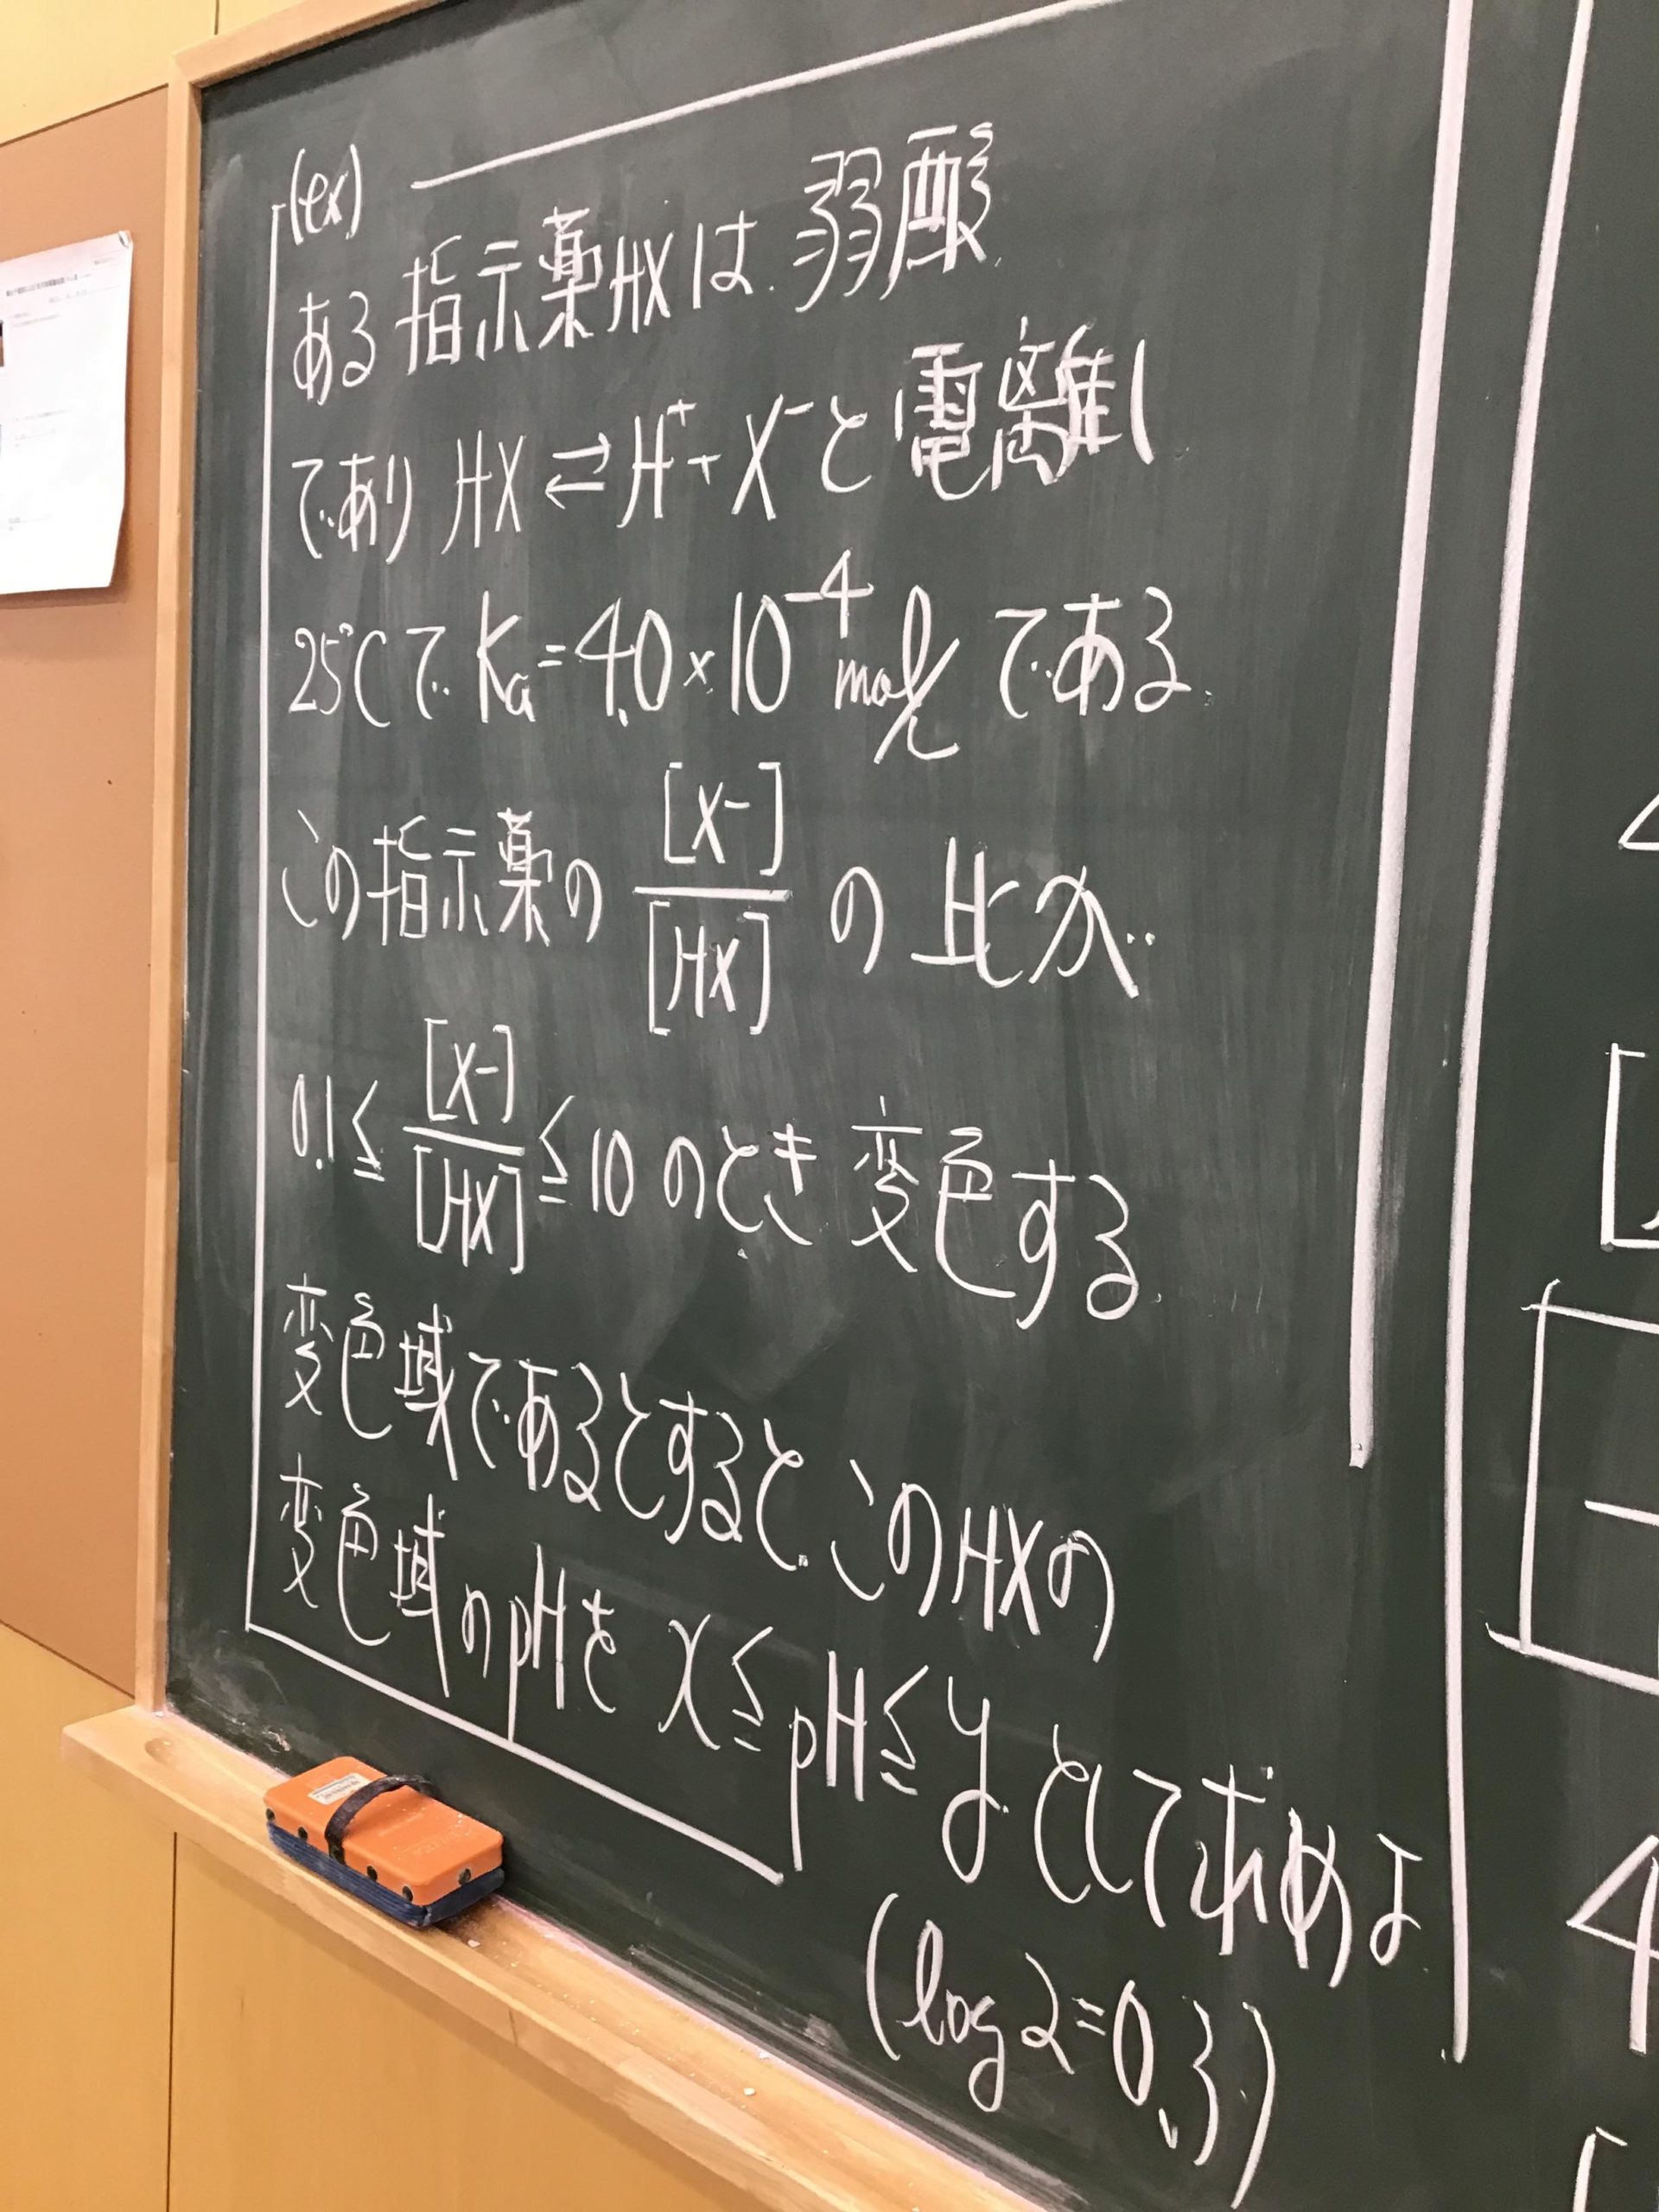 (ex)
ある指示薬HXは弱酸
であり HX ⇄ H⁺ + X⁻と電離し
25℃で Ka = 4.0 × 10⁻⁴ mol/L である
この指示薬の [X⁻]/[HX] の比が
0.1 ≦ [X⁻]/[HX] ≦ 10 のとき 変色する
変色域であるとすると、このHXの
変色域のpHを x ≦ pH ≦ y として求めよ
(log2=0.3)